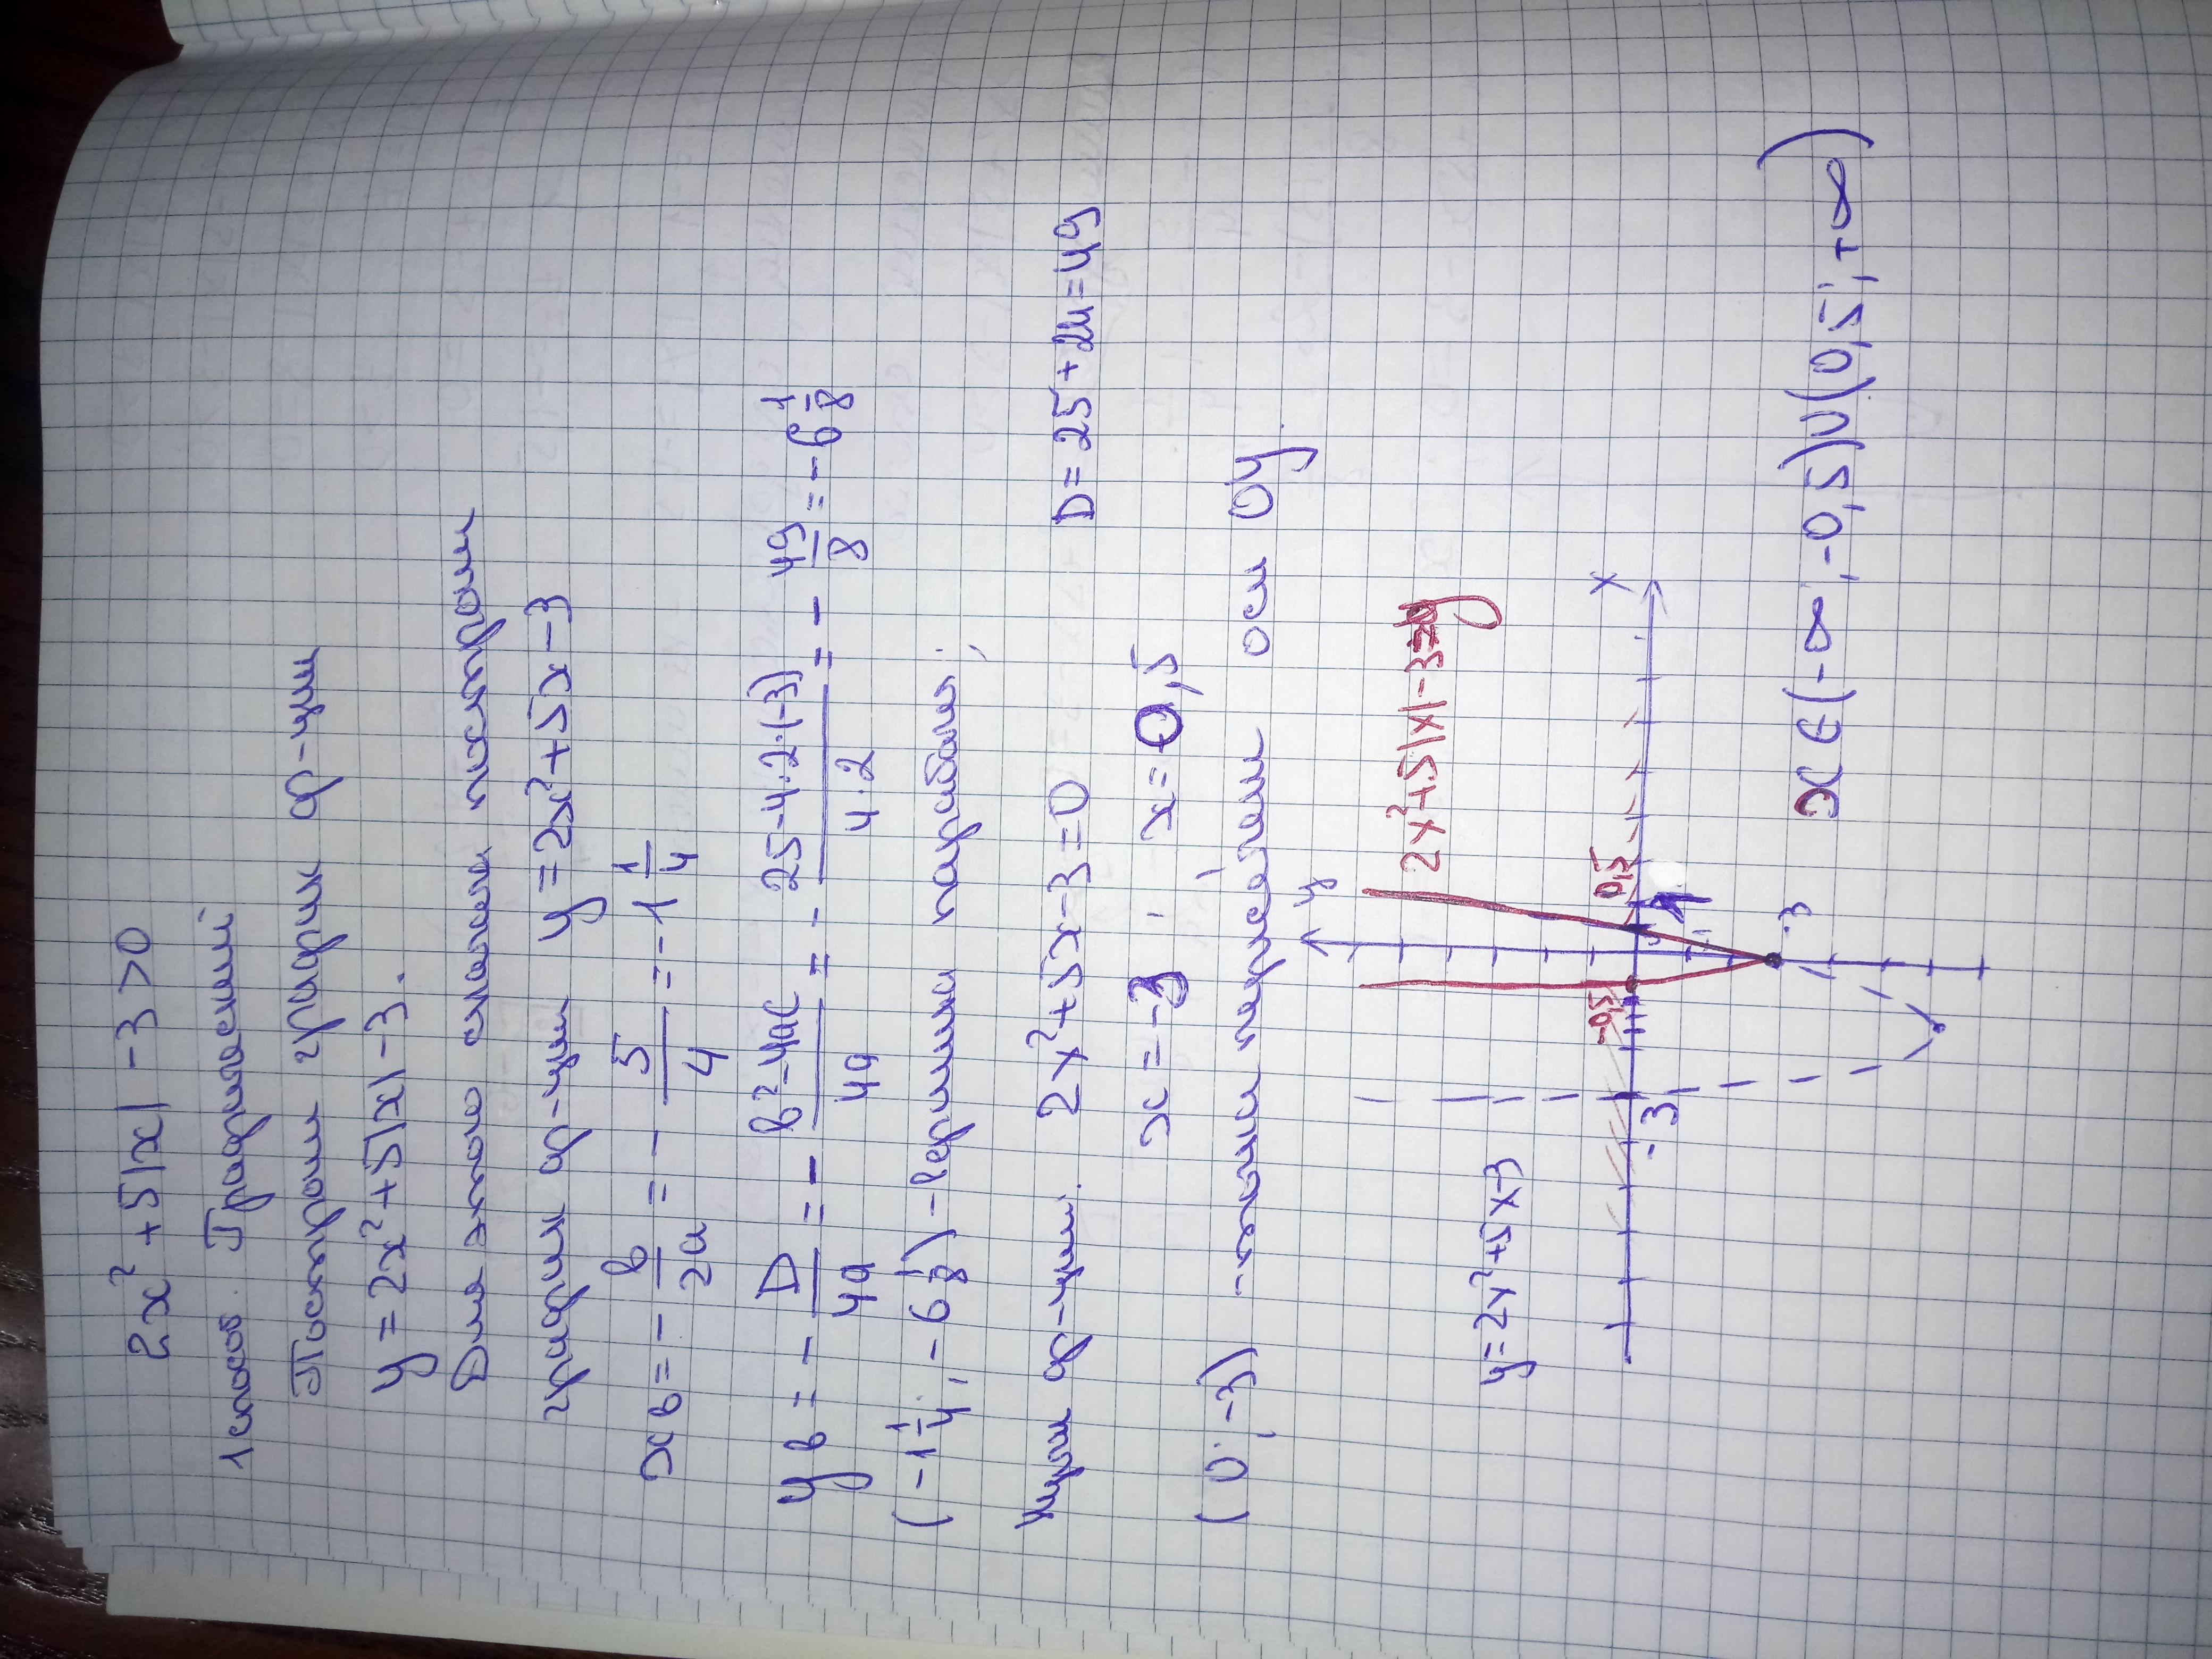 2x² + 5|x| - 3 > 0
1 способ. Графический
Построим график ф-ции
y = 2x² + 5|x| - 3.
Для этого сначала построим
график ф-ции y = 2x² + 5x - 3
xв = - в/2a = - 5/4 = -1 1/4
yв = - D/4a = - в²-4ac/4a = - 25-4·2·(-3)/4·2 = - 49/8 = -6 1/8
(-1 1/4; -6 1/8) - вершина параболы;
Нули ф-ции: 2x² + 5x - 3 = 0 D = 25 + 24 = 49
x = -3; x = 0,5
(0; -3) - точка пересечения оси Oy.
y
2x²+5|x|-3=y
y = 2x²+5x-3
-3
-0,5
0,5
1
x
-3
x ∈ (-∞; -0,5) ∪ (0,5; +∞)